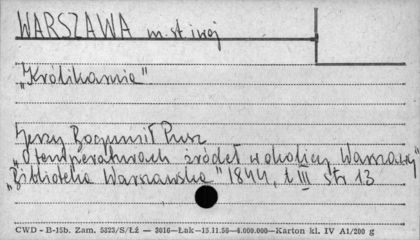 WARSZAWA m. st. i woj
"Królikarnia"
Jerzy Bogumił Pusz
"O temperaturach źródeł w okolicy Warszawy"
"Biblioteka Warszawska" 1844, t III str 13
CWD - B-15b. Zam. 5823/S/Łź — 3016—Łak—15.11.55—4.000.000—Karton kl. IV A1/200 g